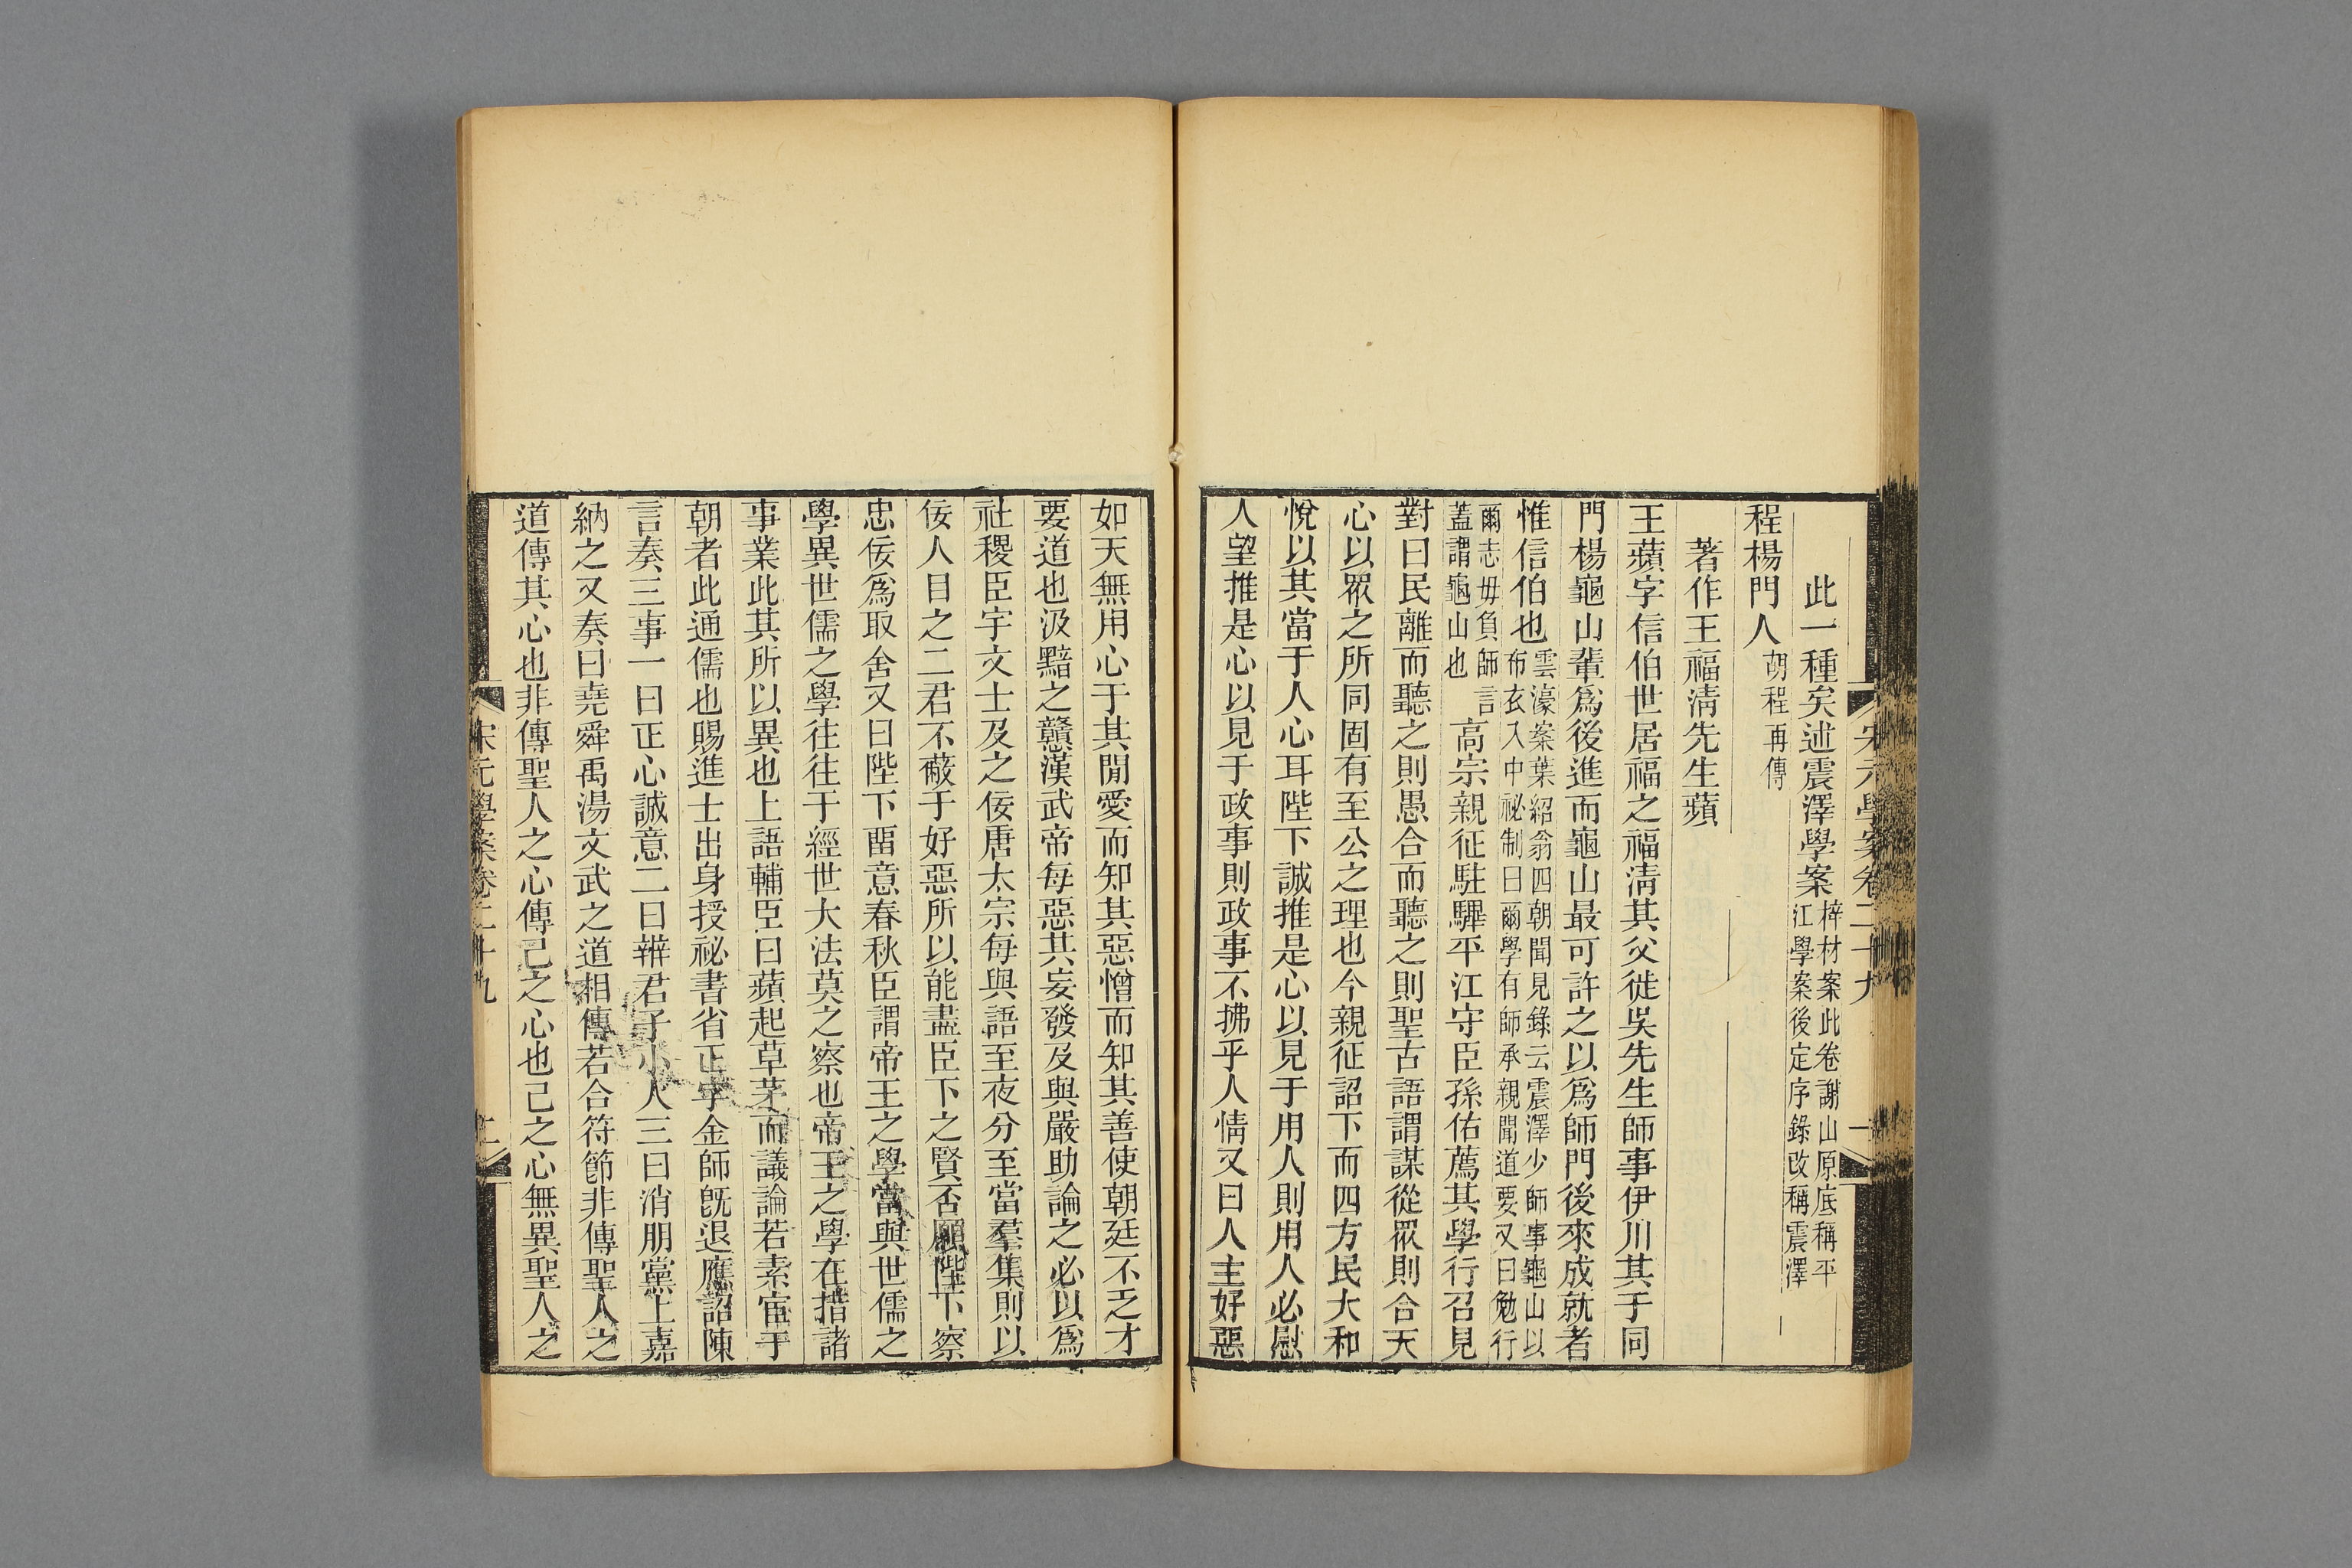 宋元學案卷二十九
一
此一種矣述震澤學案梓材案此卷謝山原底稱平江學案後定序錄改稱震澤
程楊門人胡程再傳
著作王福淸先生蘋
王蘋字信伯世居福之福淸其父徙吳先生師事伊川其于同
門楊龜山輩爲後進而龜山最可許之以爲師門後來成就者
惟信伯也雲濠案葉紹翁四朝聞見錄云震澤少師事龜山以布衣入中祕制曰爾學有師承親聞道要又曰勉行
爾志毋負師言蓋謂龜山也高宗親征駐驆平江守臣孫佑薦其學行召見
對曰民離而聽之則愚合而聽之則聖古語謂謀從眾則合天
心以眾之所同固有至公之理也今親征詔下而四方民大和
悅以其當于人心耳陛下誠推是心以見于用人則用人必慰
人望推是心以見于政事則政事不拂乎人情又曰人主好惡
如天無用心于其閒愛而知其惡憎而知其善使朝廷不乏才
要道也汲黯之戇漢武帝每惡其妄發及與嚴助論之必以爲
社稷臣宇文士及之佞唐太宗每與語至夜分至當羣集則以
佞人目之二君不蔽于好惡所以能盡臣下之賢否願陛下察
忠佞爲取舍又曰陛下畱意春秋臣謂帝王之學當與世儒之
學異世儒之學往往于經世大法莫之察也帝王之學在措諸
事業此其所以異也上語輔臣曰蘋起草茅而議論若素宦于
朝者此通儒也賜進士出身授祕書省正字金師旣退應詔陳
言奏三事一曰正心誠意二曰辨君子小人三曰消朋黨上嘉
納之又奏曰堯舜禹湯文武之道相傳若合符節非傳聖人之
道傳其心也非傳聖人之心傳己之心也己之心無異聖人之
宋元學案卷二十九
二